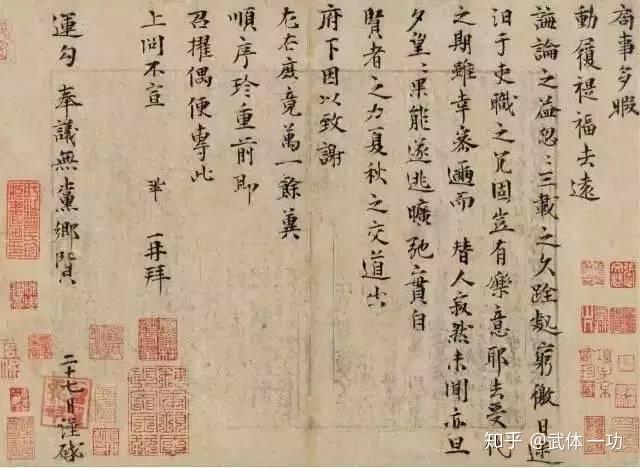 局事多暇
動履禔福去遠
誨論之益忽〻三載之久跧處窮徼日迷
汩于吏職之冗固豈有樂意耶去受代
之期雖幸密邇而替人寂然未聞亦旦
夕望〻果能遂逃曠弛實自
賢者之力夏秋之交道出
府下因以致謝
左右庶竟萬一餘冀
順序珍重前即
召擢偶便專此
上問不宣 鞏 再拜
運勾奉議無黨鄉賢 二十七日謹啓
知乎 @武体一功